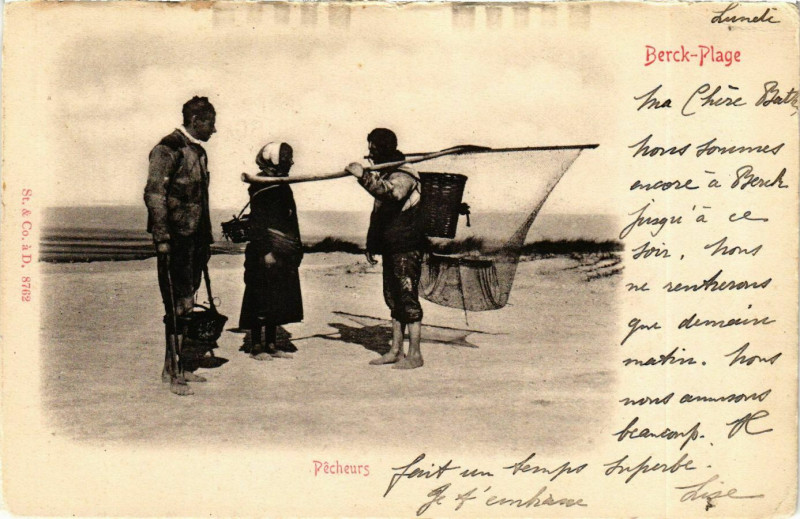 Lundi
Berck-Plage
Ma Chère Berthe,
Nous sommes
encore à Berck
jusqu'à ce
soir. Nous
ne rentrerons
que demain
matin. Nous
nous amusons
beaucoup. Il
fait un temps superbe.
Je t'embrasse
Lise
Pêcheurs
St. & Co. à D. 8762